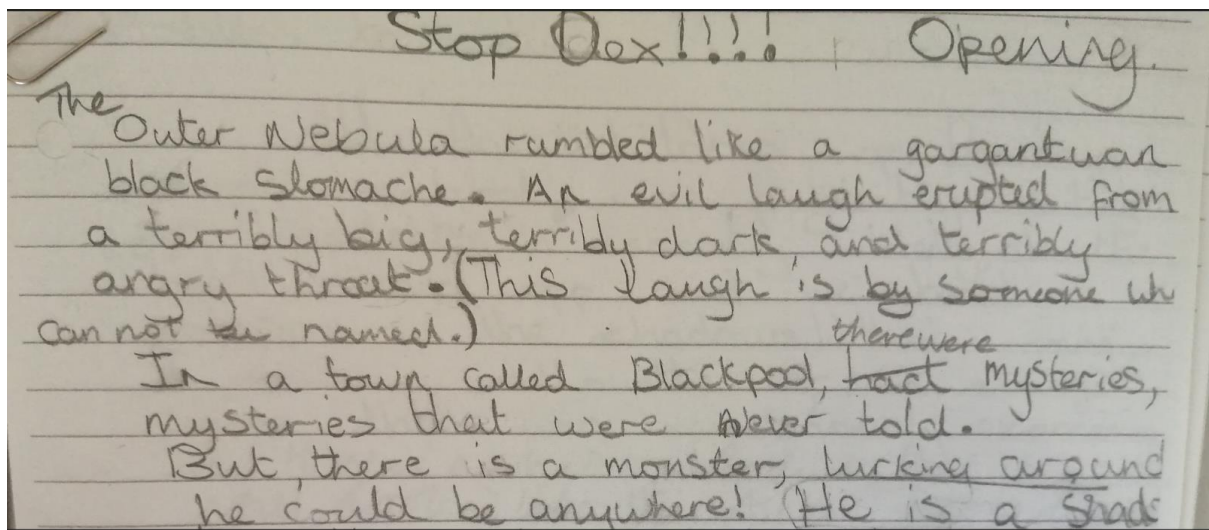 Stop Dex!!!! Opening.
The Outer Nebula rumbled like a gargantuan
black Slomache. An evil laugh erupted from
a terribly big, terribly dark, and terribly
angry throat. (This laugh is by someone wh
can not be named.)
there were
In a town called Blackpool, had mysteries,
mysteries that were Never told.
But, there is a monster, lurking around
he could be anywhere! (He is a Shado